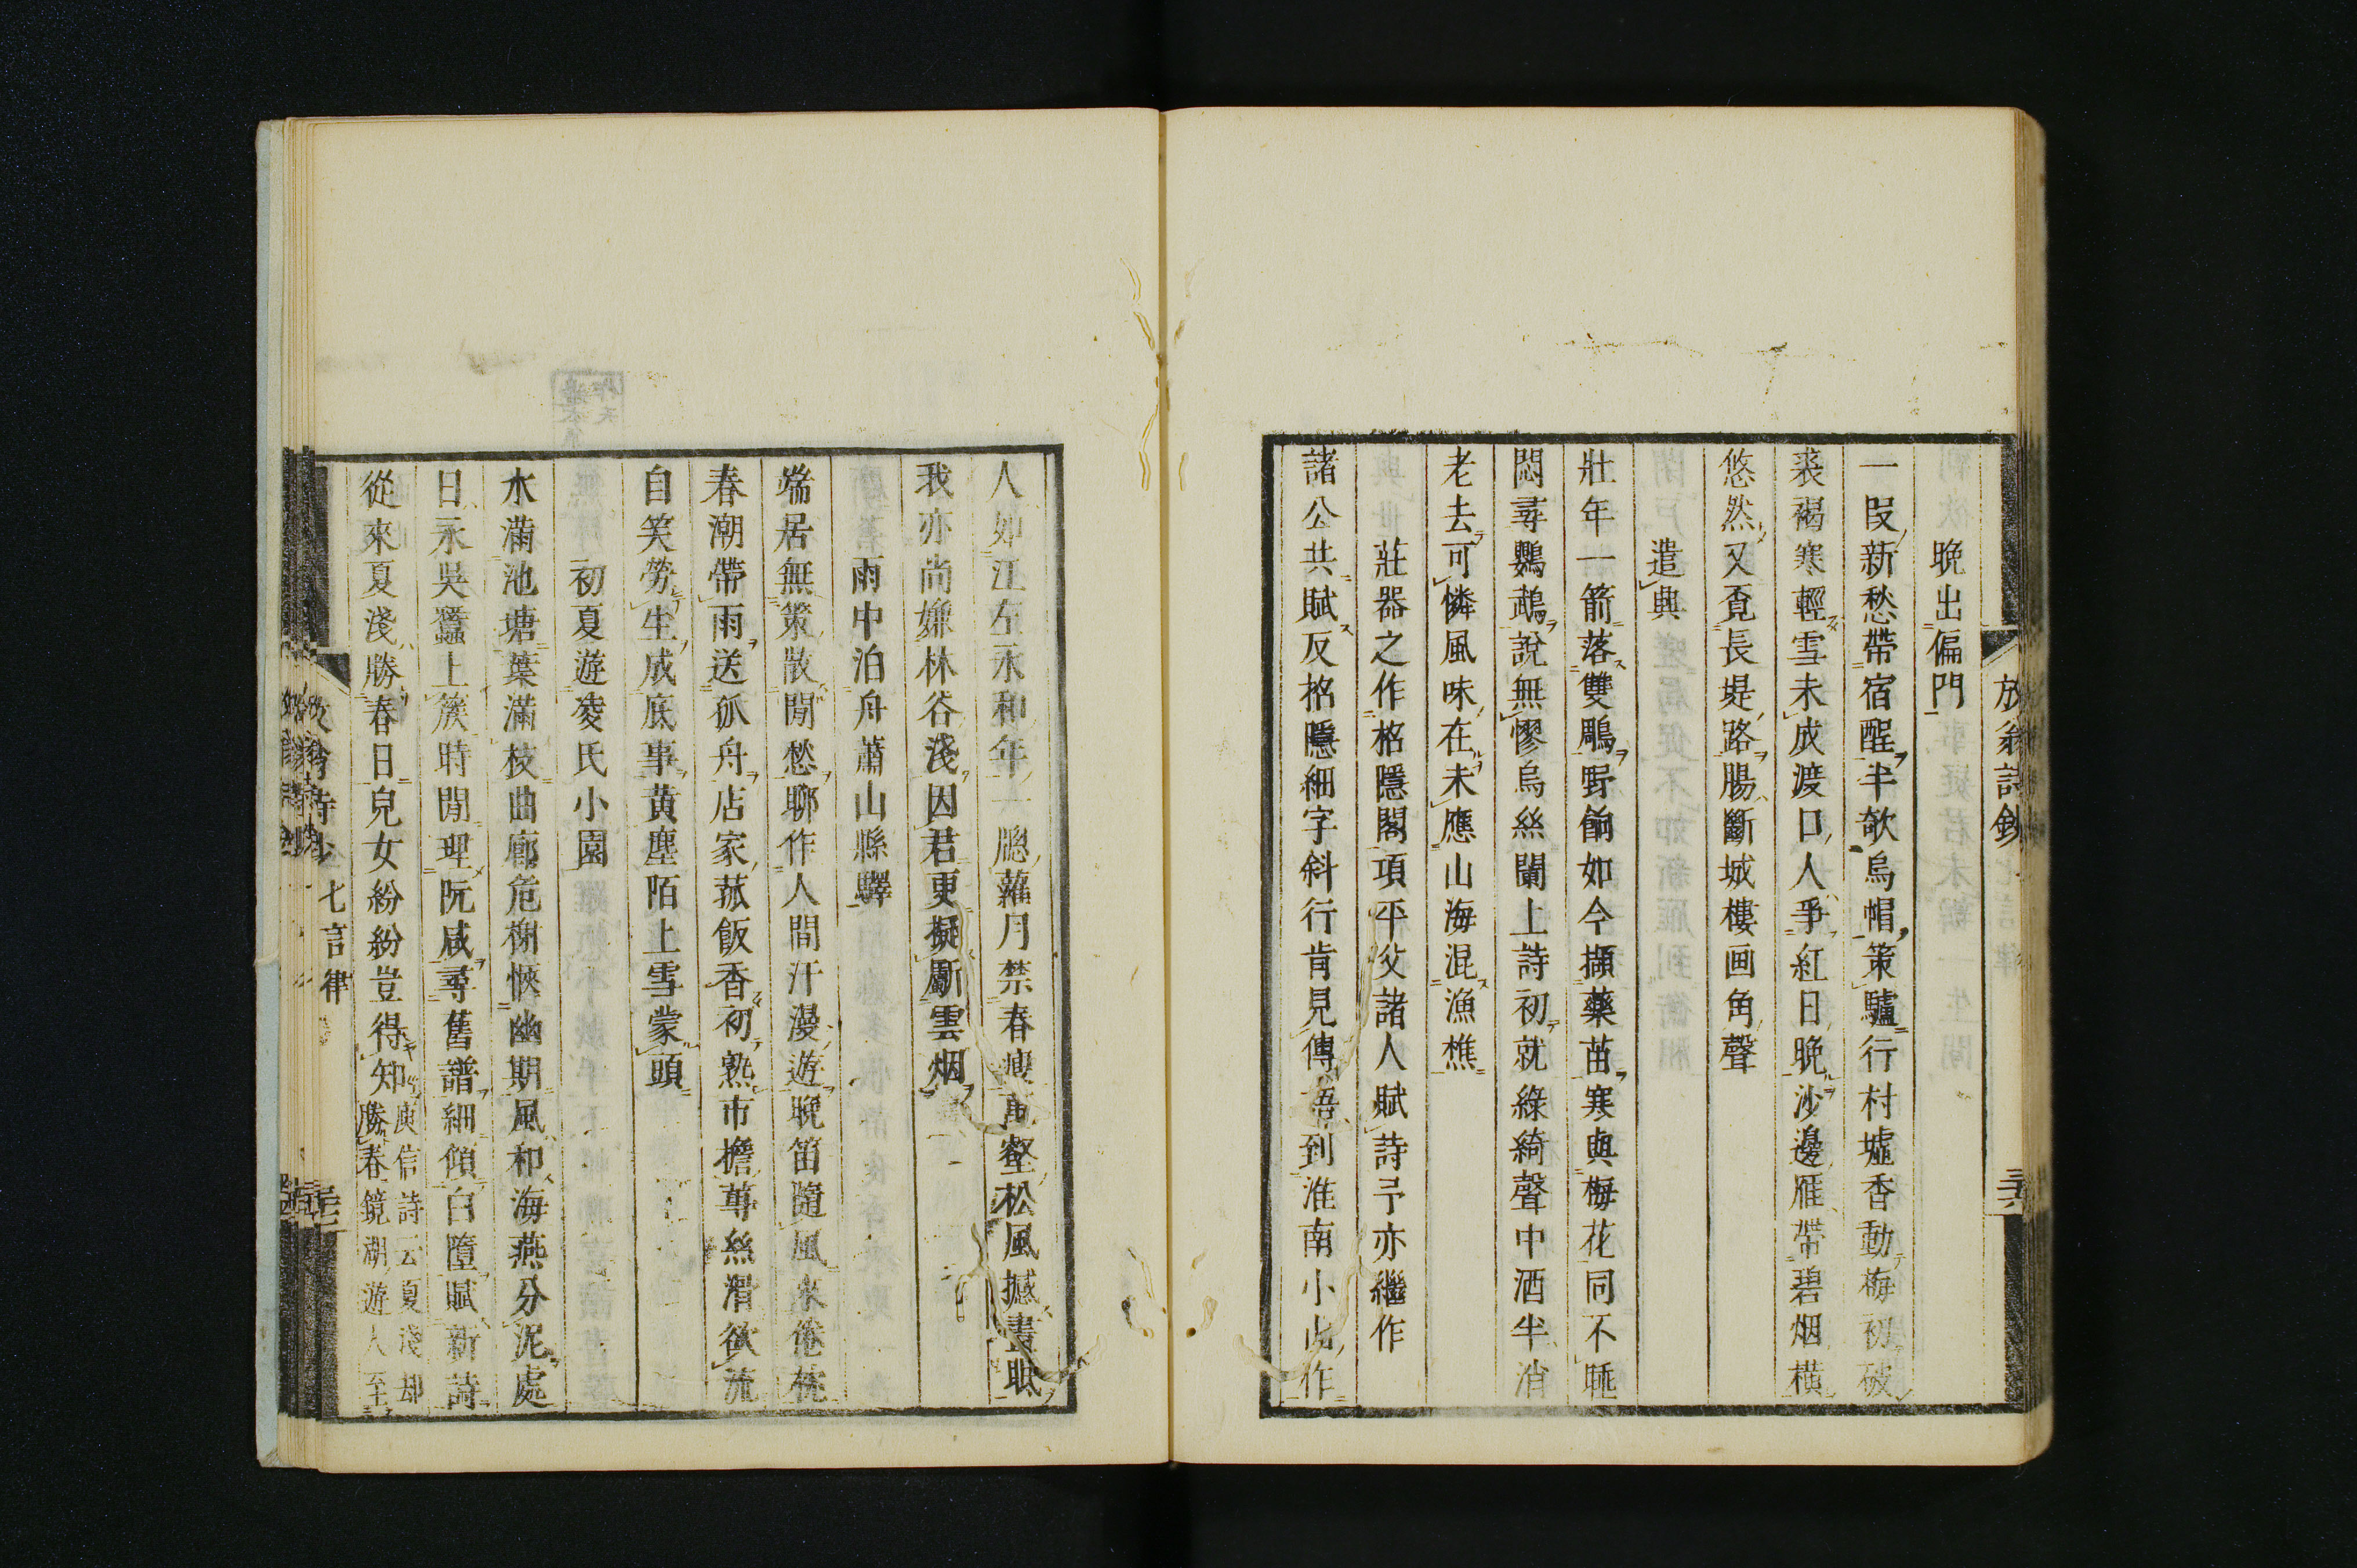 放翁詩鈔
三六
晩出偏門
一叚新愁帶宿酲半欹烏帽策驢行村墟香動梅初破
裘褐寒輕雪未成渡口人爭紅日晩沙邊雁帶碧烟横
悠然又覔長堤路腸斷城樓画角聲
遣興
壯年一箭落雙鵰野餉如今擷藥苗寒與梅花同不睡
悶尋鸚鵡說無憀烏絲闌上詩初就綠綺聲中酒半消
老去可憐風味在未應山海混漁樵
莊器之作格隱閣項平父諸人賦詩予亦繼作
諸公共賦反格隱細字斜行肯見傳語到淮南小山作
人如江左永和年一牕蘿月禁春瘦萬壑松風撼晝眠
我亦尚嫌林谷淺因君更擬劚雲烟
雨中泊舟蕭山縣驛
端居無策散閒愁聊作人間汗漫遊晩笛隨風來倦枕
春潮帶雨送孤舟店家菰飯香初熟市擔蓴絲滑欲流
自笑勞生成底事黄塵陌上雪蒙頭
初夏遊凌氏小園
水滿池塘葉滿枝曲廊危榭愜幽期風和海燕分泥處
日永吳蠶上簇時閒理阮咸尋舊譜細傾白墮賦新詩
從來夏淺勝春日皃女紛紛豈得知庾信詩云夏淺却
勝春鏡湖遊人至
七言律